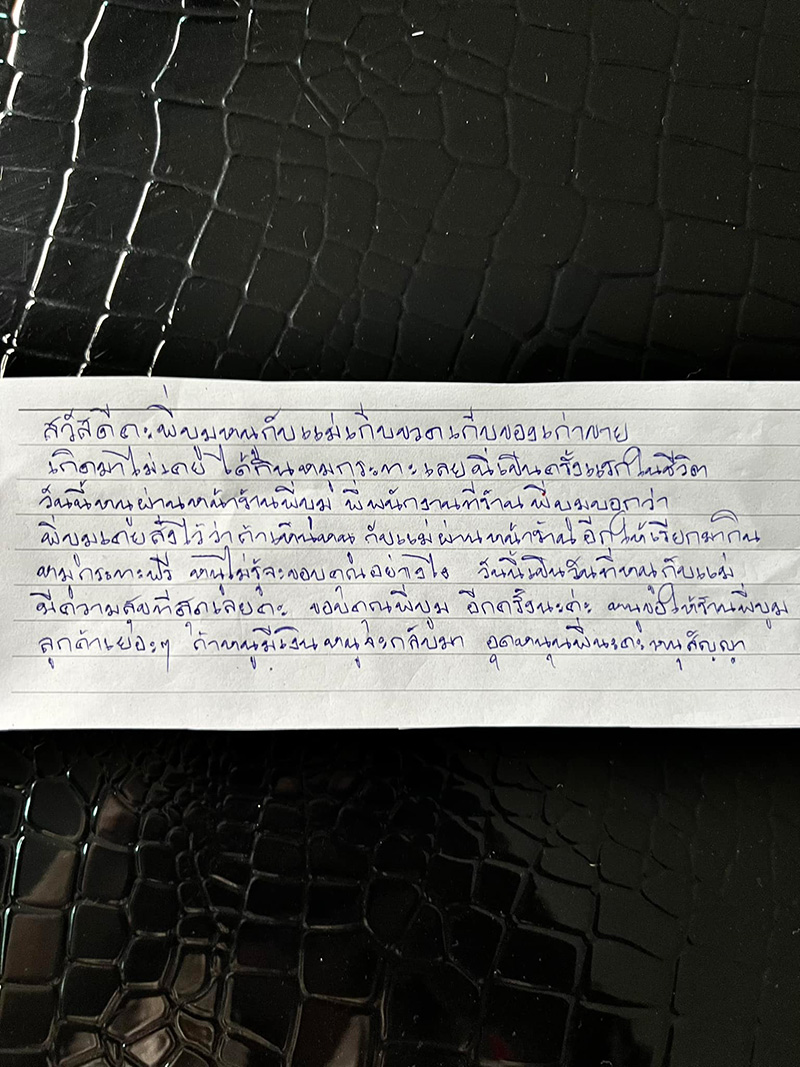 สวัสดีคะพี่บูมหนูกับแม่เก็บขวดเก็บของเก่าขาย
เกิดมาไม่เคยได้กินหมูกระทะเลยนี่เป็นครั้งแรกในชีวิต
วันนี้หนูผ่านหน้าร้านพี่บูม พี่พนักงานที่ร้านพี่บูมบอกว่า
พี่บูมเคยสั่งไว้ว่าถ้าเห็นหนูกับแม่ผ่านหน้าร้านอีกให้เรียกมากิน
หมูกระทะฟรี หนูไม่รู้จะขอบคุณอย่างไง วันนี้เป็นวันที่หนูกับแม่
มีความสุขที่สุดเลยคะ ขอบคุณพี่บูม อีกครั้งนะค่ะ หนูขอให้ร้านพี่บูม
ลูกค้าเยอะๆ ถ้าหนูมีเงินหนูจะกลับมา อุดหนุนพี่นะคะหนูสัญญา